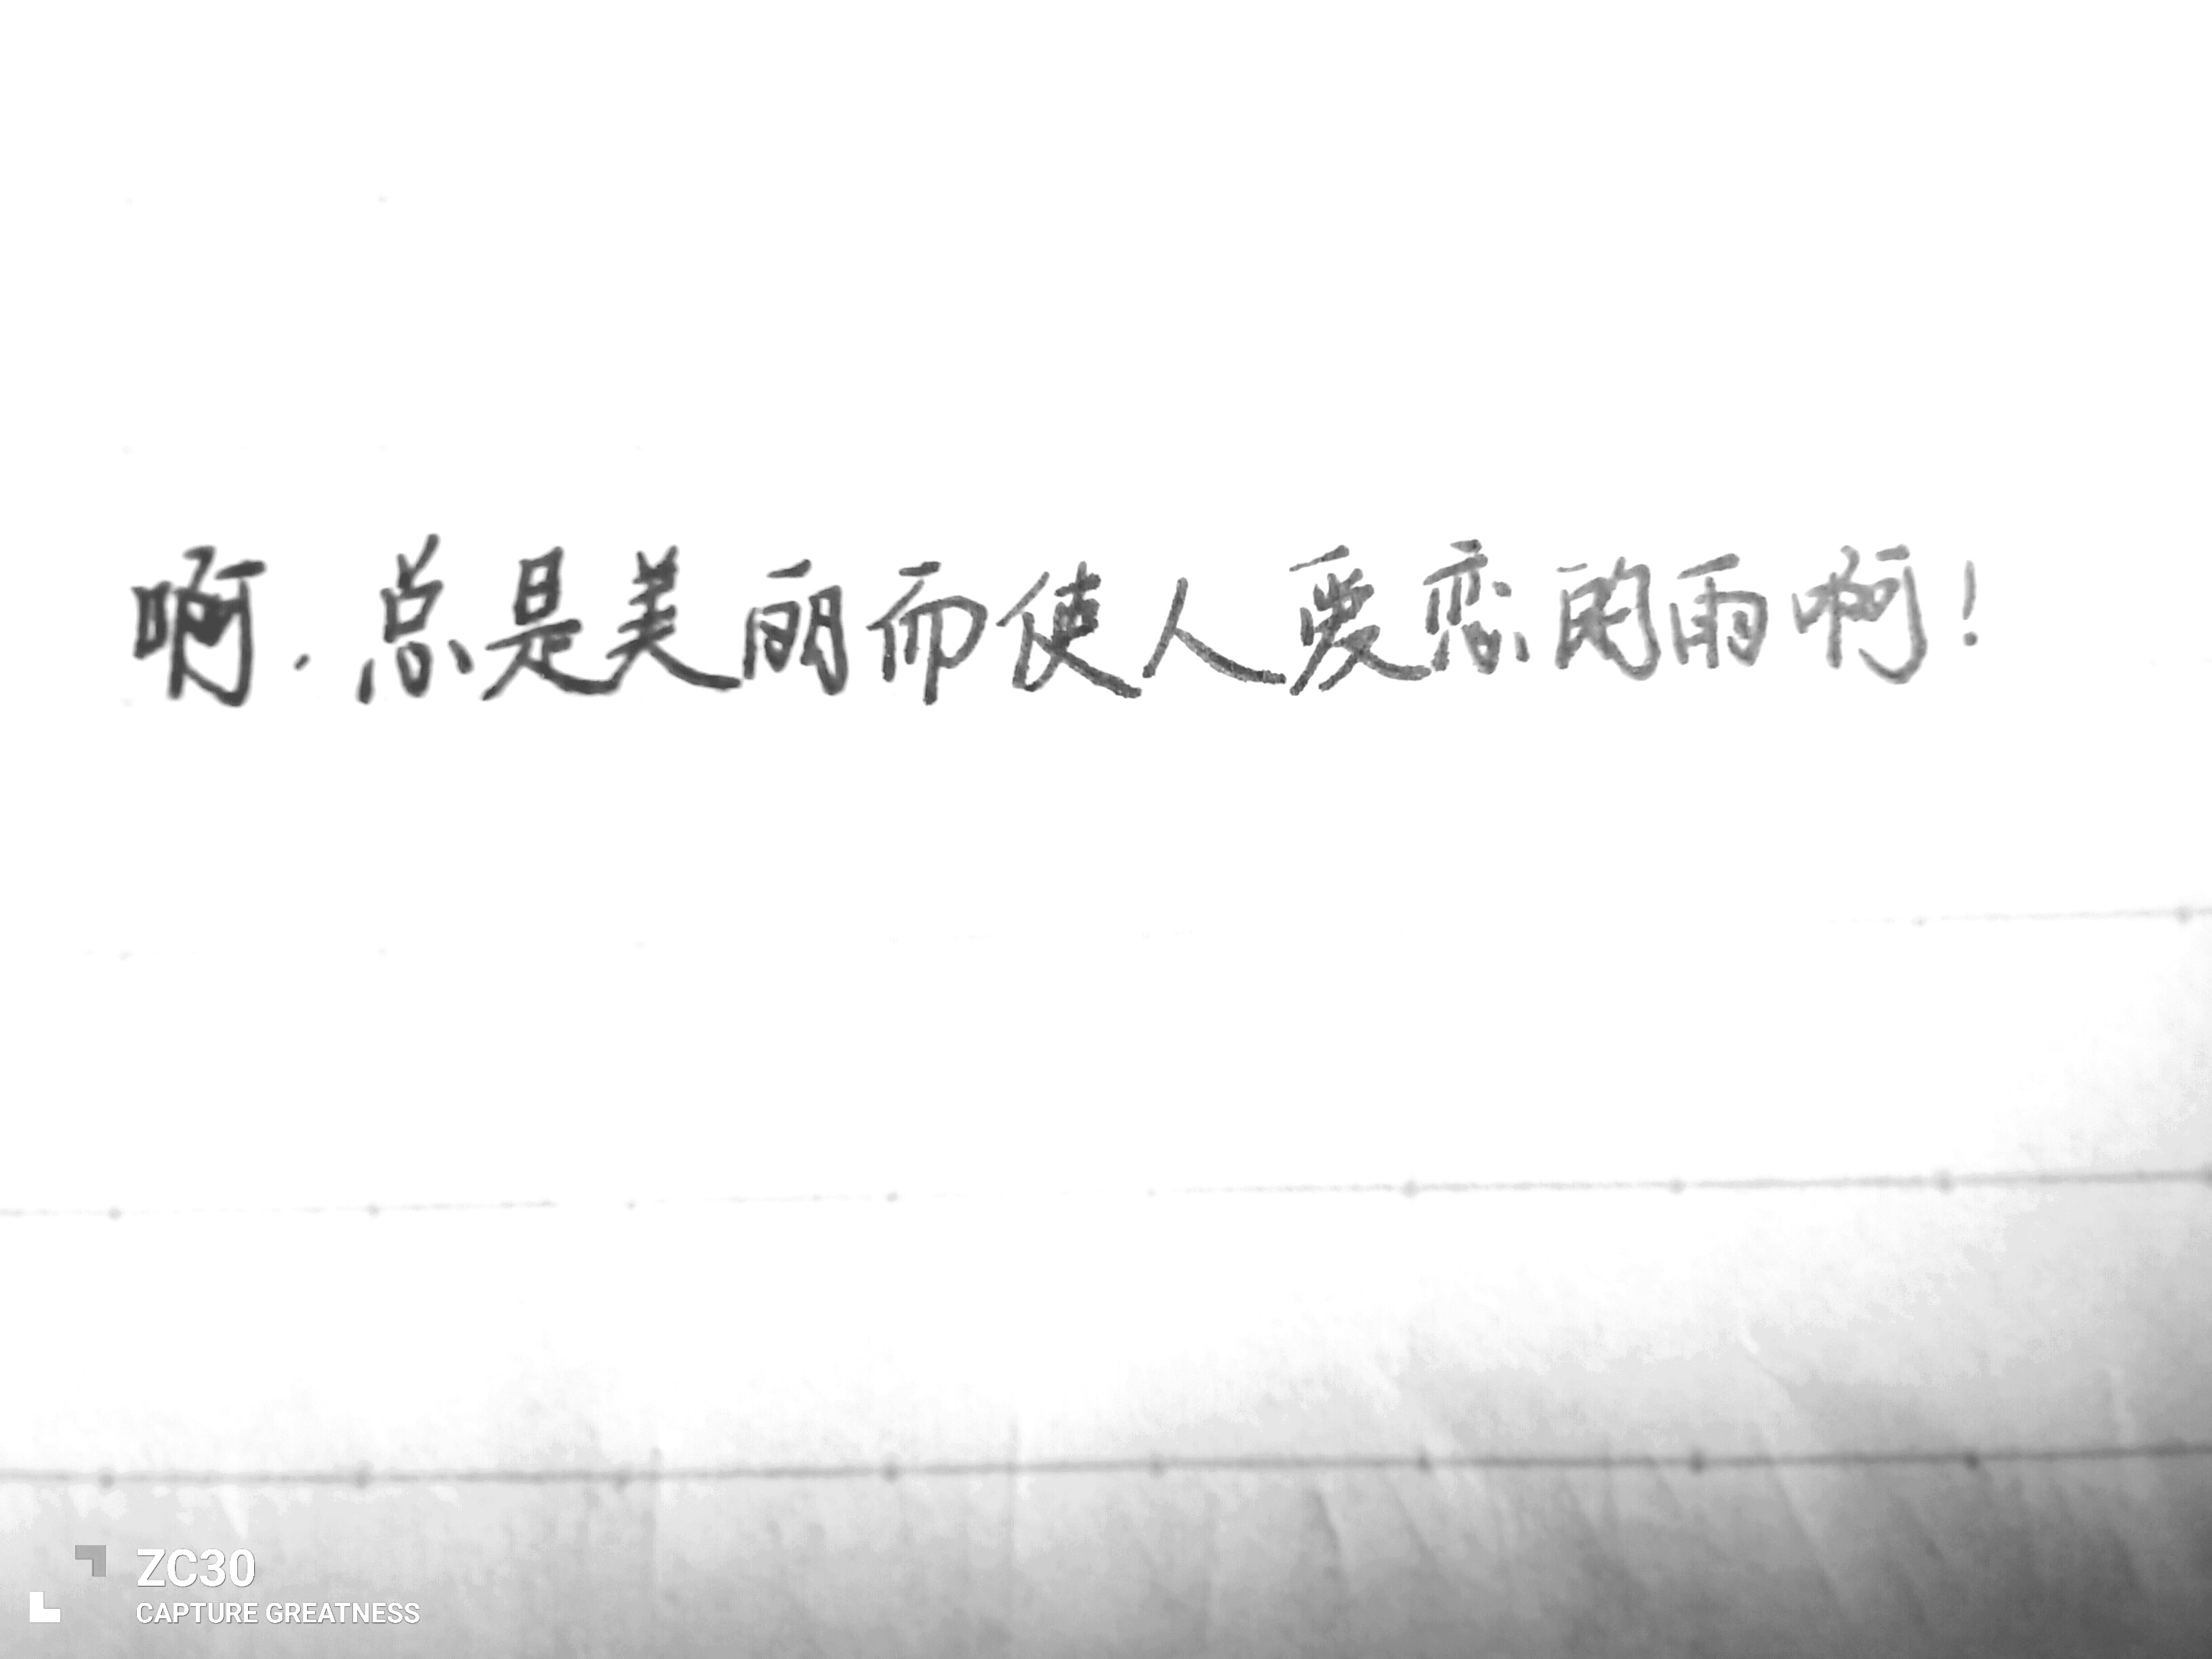 啊，总是美丽而使人爱恋的雨啊！
ZC30
CAPTURE GREATNESS